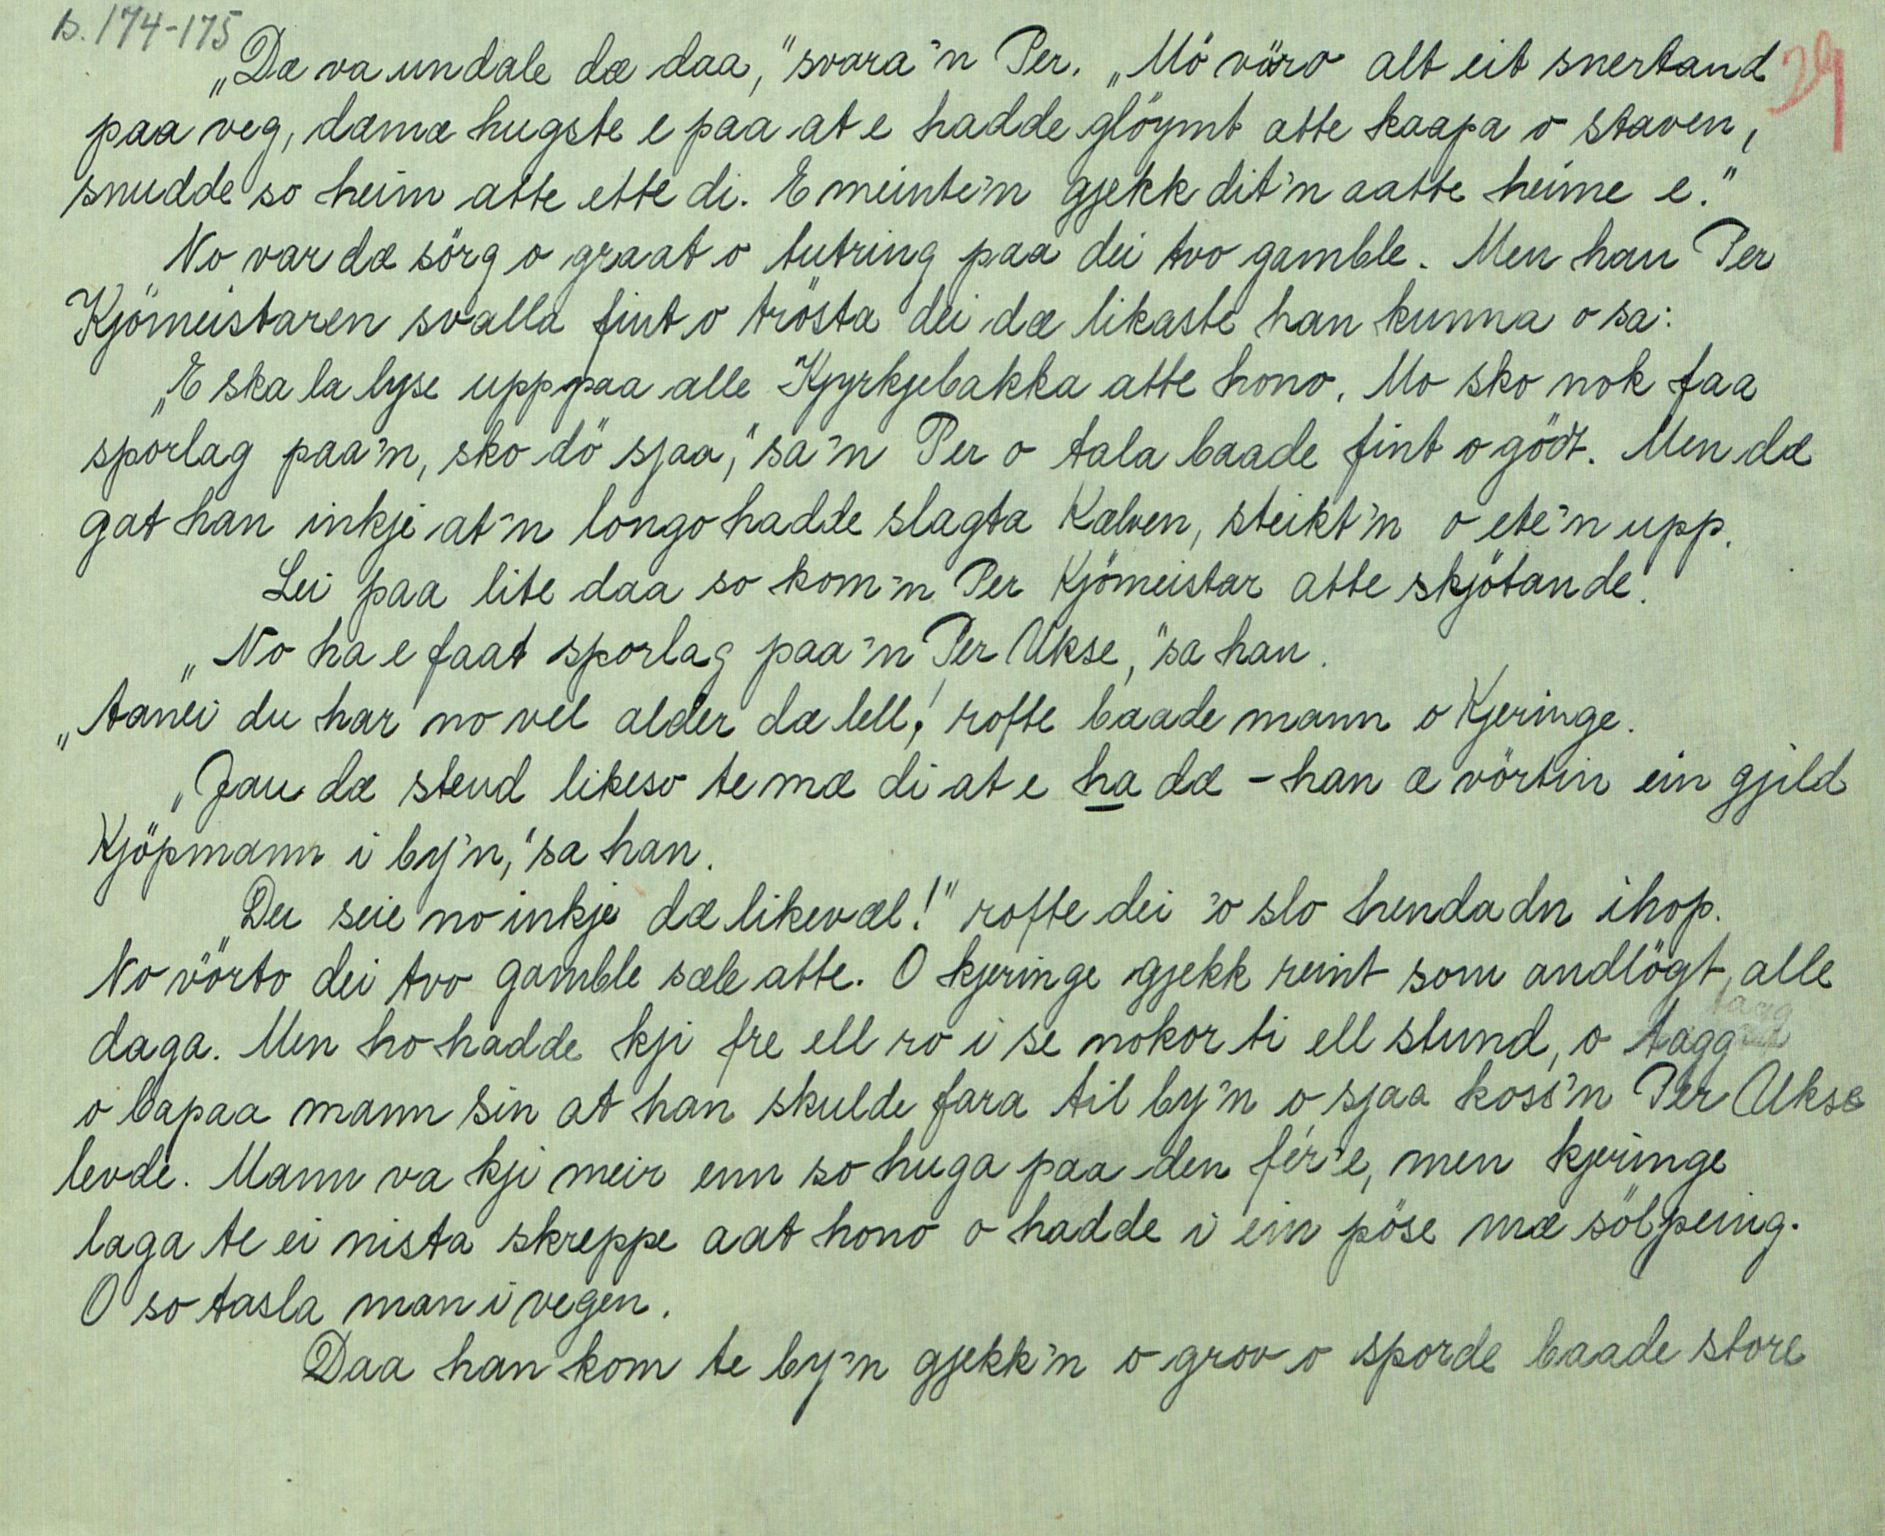 s. 174-175
29
„Dæ va undale dæ daa," svara 'n Per. „Mö vöro alt eit snertand
paa veg, dæmæ hugste e paa at e hadde glöymt atte kaapa o staven,
snudde so heim atte ette di. E meinte'n gjekk dit'n aatte heime e."
No var dæ sörg o graat o tutring paa dei tvo gamble. Men han Per
Kjömeistaren svalla fint o trösta dei dæ likaste han kunna o sa:
„E ska la lyse upp paa alle Kjyrkjebakka atte hono. Mo sko nok faa
sporlag paa'n, sko dö sjaa," sa'n Per o tala baade fint o gödt. Men dæ
gat han inkje at'n longo hadde slagta Kælven, steikt'n o ete'n upp.
Lei paa lite daa so kom'n Per Kjömeistar atte skjötande.
„No ha e faat sporlag paa'n Per Ukse," sa han.
„Aanei du har no vel alder dæ lell! rofte baade mann o Kjeringe.
„Jau dæ stend likeso te mæ di at e ha dæ – han æ vörtin ein gjild
Kjöpmann i by'n," sa han.
„Du seie no inkje dæ likevæl!" rofte dei o slo hendadn ihop.
No vörto dei tvo gamble sæle atte. O kjeringe gjekk reint som andlögt, alle
daga. Men ho hadde kji fre ell ro i se nokor ti ell stund, o tagg
o bapaa mann sin at han skulde fara til by'n o sjaa koss'n Per Ukse
levde. Mann va kji meir enn so huga paa den fér'e, men kjeringe
laga te ei nista skreppe aat hono o hadde i ein pöse mæ sölpeing.
O so tasla man i vegen.
Daa han kom te by'n gjekk'n o grov o sporde baade store